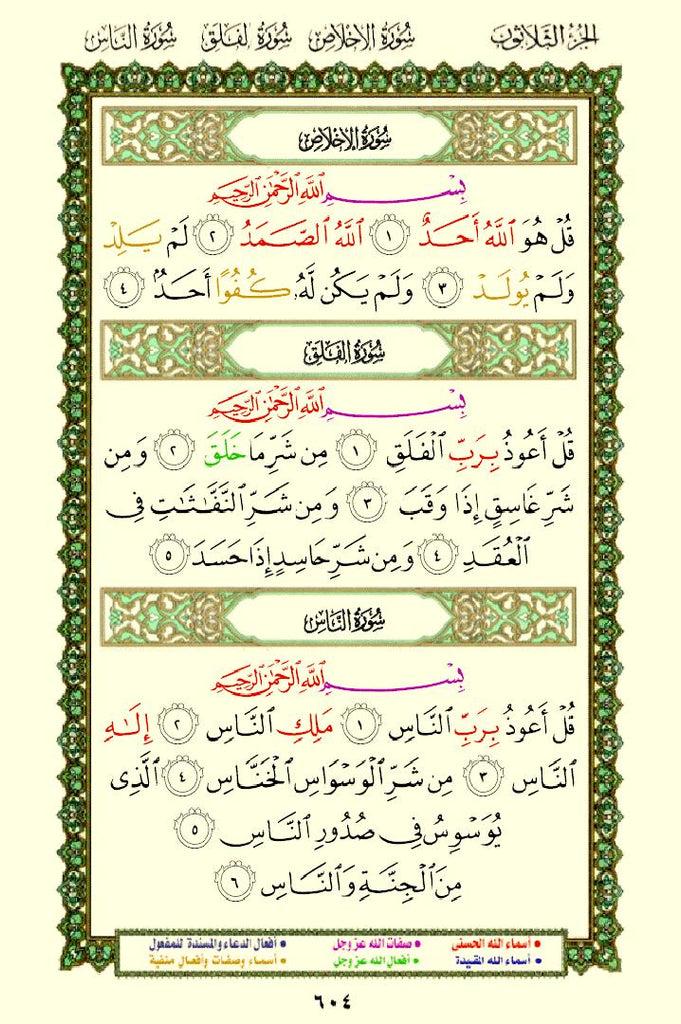 الجزء الثلاثون سورة الإخلاص سورة الفلق سورة الناس
سُورَةُ الإِخْلَاصِ
بِسْمِ ٱللَّهِ ٱلرَّحْمَٰنِ ٱلرَّحِيمِ
قُلْ هُوَ ٱللَّهُ أَحَدٌ ١ ٱللَّهُ ٱلصَّمَدُ ٢ لَمْ يَلِدْ
وَلَمْ يُولَدْ ٣ وَلَمْ يَكُن لَّهُۥ كُفُوًا أَحَدٌۢ ٤
سُورَةُ الفَلَقِ
بِسْمِ ٱللَّهِ ٱلرَّحْمَٰنِ ٱلرَّحِيمِ
قُلْ أَعُوذُ بِرَبِّ ٱلْفَلَقِ ١ مِن شَرِّ مَا خَلَقَ ٢ وَمِن
شَرِّ غَاسِقٍ إِذَا وَقَبَ ٣ وَمِن شَرِّ ٱلنَّفَّٰثَٰتِ فِى
ٱلْعُقَدِ ٤ وَمِن شَرِّ حَاسِدٍ إِذَا حَسَدَ ٥
سُورَةُ النَّاسِ
بِسْمِ ٱللَّهِ ٱلرَّحْمَٰنِ ٱلرَّحِيمِ
قُلْ أَعُوذُ بِرَبِّ ٱلنَّاسِ ١ مَلِكِ ٱلنَّاسِ ٢ إِلَٰهِ
ٱلنَّاسِ ٣ مِن شَرِّ ٱلْوَسْوَاسِ ٱلْخَنَّاسِ ٤ ٱلَّذِى
يُوَسْوِسُ فِى صُدُورِ ٱلنَّاسِ ٥
مِنَ ٱلْجِنَّةِ وَٱلنَّاسِ ٦
• أسماء الله الحسنى • صفات الله عز وجل • أفعال الدعاء والمسندة للمفعول
• أسماء الله المقيدة • أفعال الله عز وجل • أسماء وصفات وأفعال منفية
٦٠٤